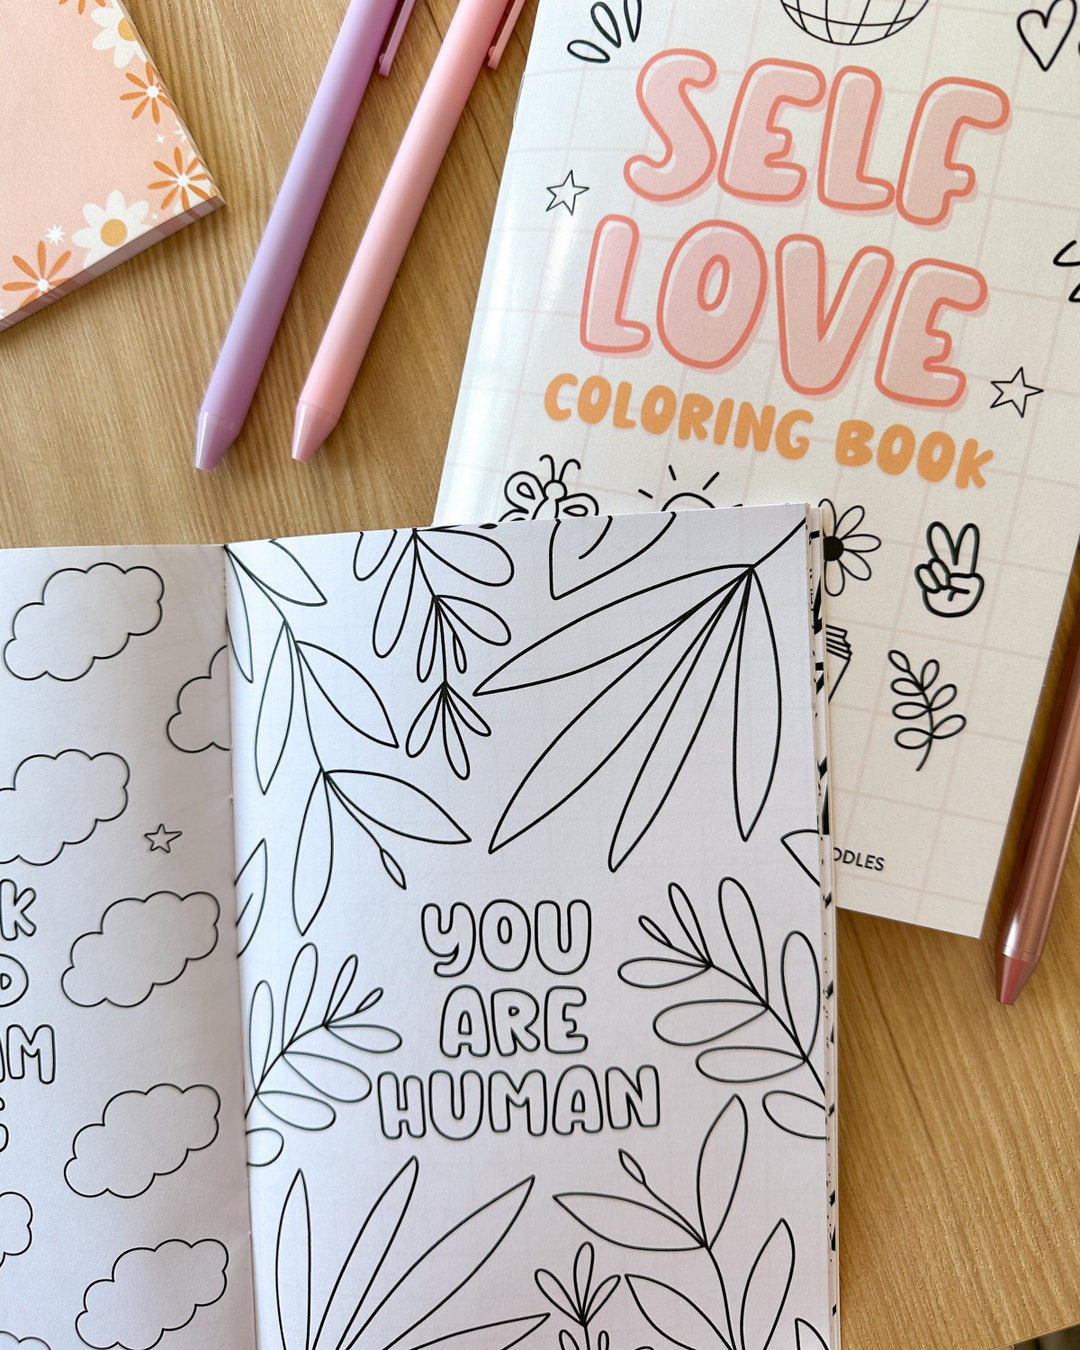 SELF
LOVE
COLORING BOOK
YOU
ARE
HUMAN